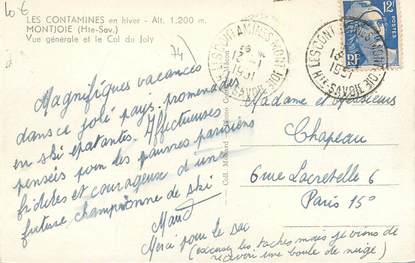 LES CONTAMINES en hiver - Alt. 1.200 m.
MONTJOIE (Hte-Sav.)
Vue générale et le Col du Joly
Magnifiques vacances
dans ce joli pays, promenades
en ski épatantes. Affectueuses
pensées pour les pauvres parisiens
fidèles et courageux d'une
future championne de ski
Maud
Merci pour le sac
(excusez les taches mais je viens de
recevoir une boule de neige)
LES CONTAMINES-MONTJOIE
1951
Hte SAVOIE
LES CONTAMINES-MONTJOIE
1951
Hte SAVOIE
12F
RF
Madame et Messieurs
Chapeau
6 rue Lacretelle 6
Paris 15°